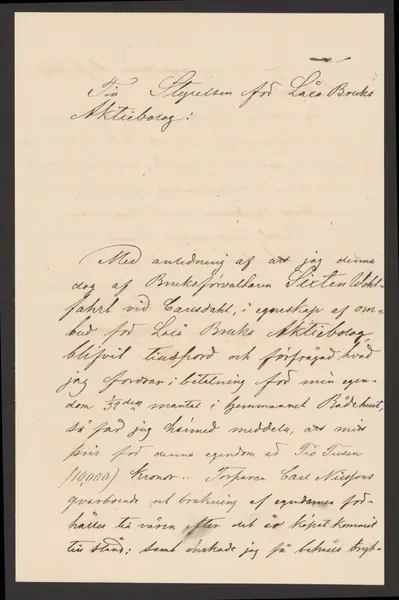 Till Styrelsen för Låes Bruks
Aktiebolag!
Med anledning af att jag denna
dag af Bruksförvaltaren Sixten Wohl-
fahrt vid Carlsdahl, i egenskap af om-
bud för Låes Bruks Aktiebolag,
blifvit tillspord och förfrågad hvad
jag fordrar i betalning för min egen-
dom mantal i hemmanet Rådehult,
så får jag härmed meddela, att mitt
pris för denna egendom är Tio Tusen
(10,000) Kronor.. Torparen Carl Nilssons
qvarboende och brukning af egendomen för-
hålles till våren efter det är köpet kommit
till stånd; samt önskade jag få behålla